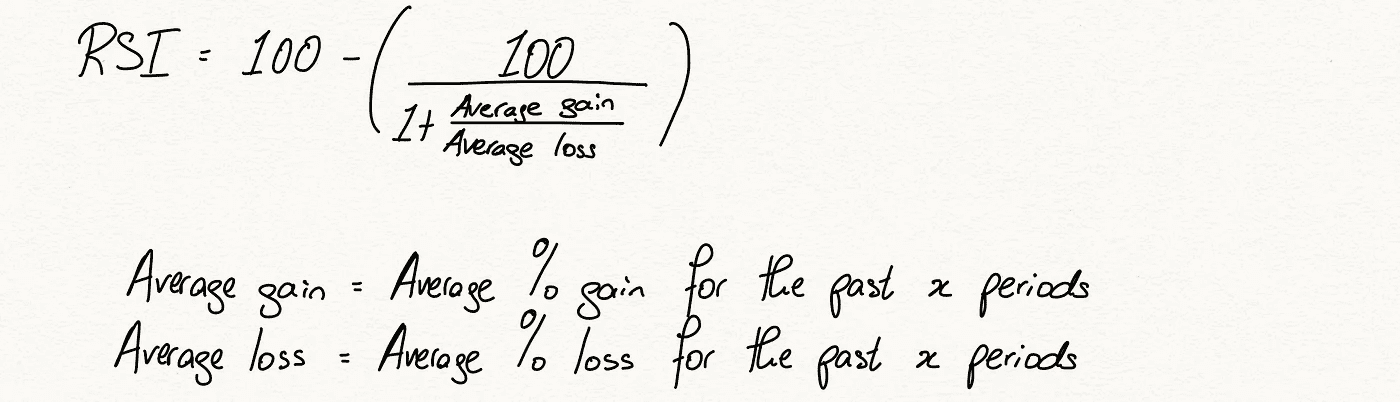 RSI = 100 - ( 100 / ( 1 + Average gain / Average loss ) )
Average gain = Average % gain for the past x periods
Average loss = Average % loss for the past x periods